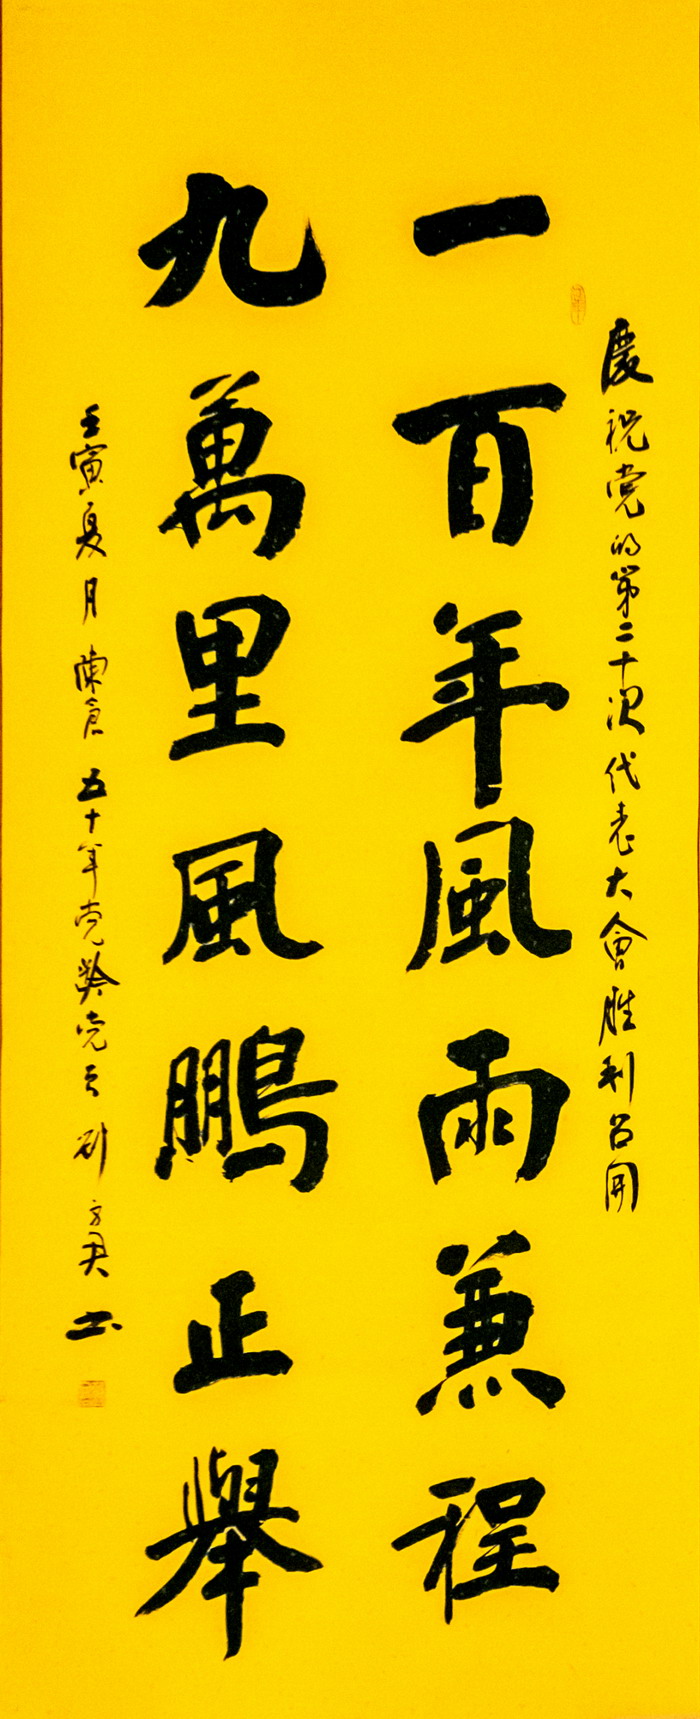 慶祝党的第二十次代表大會胜利召開
一百年風雨兼程
九萬里風鵬正舉
壬寅夏月 五十年党齡党员 方君书